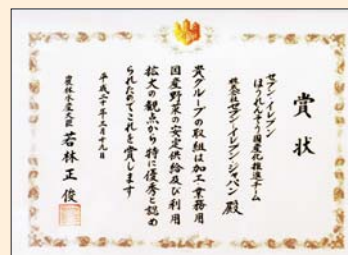 賞状
セブン-イレブン
ほうれんそう国産化推進チーム
株式会社セブン-イレブン・ジャパン 殿
貴グループの取組は加工・業務用
国産野菜の安定供給及び利用
拡大の観点から特に優秀と認め
られたのでこれを賞します
平成二十年三月十九日
農林水産大臣 若林正俊